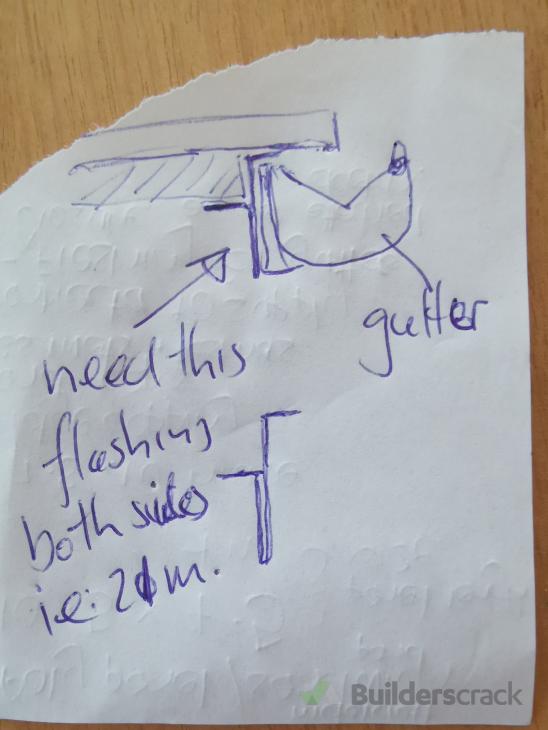 gutter
need this
flashing
both sides
i.e: 21m.
Builderscrack